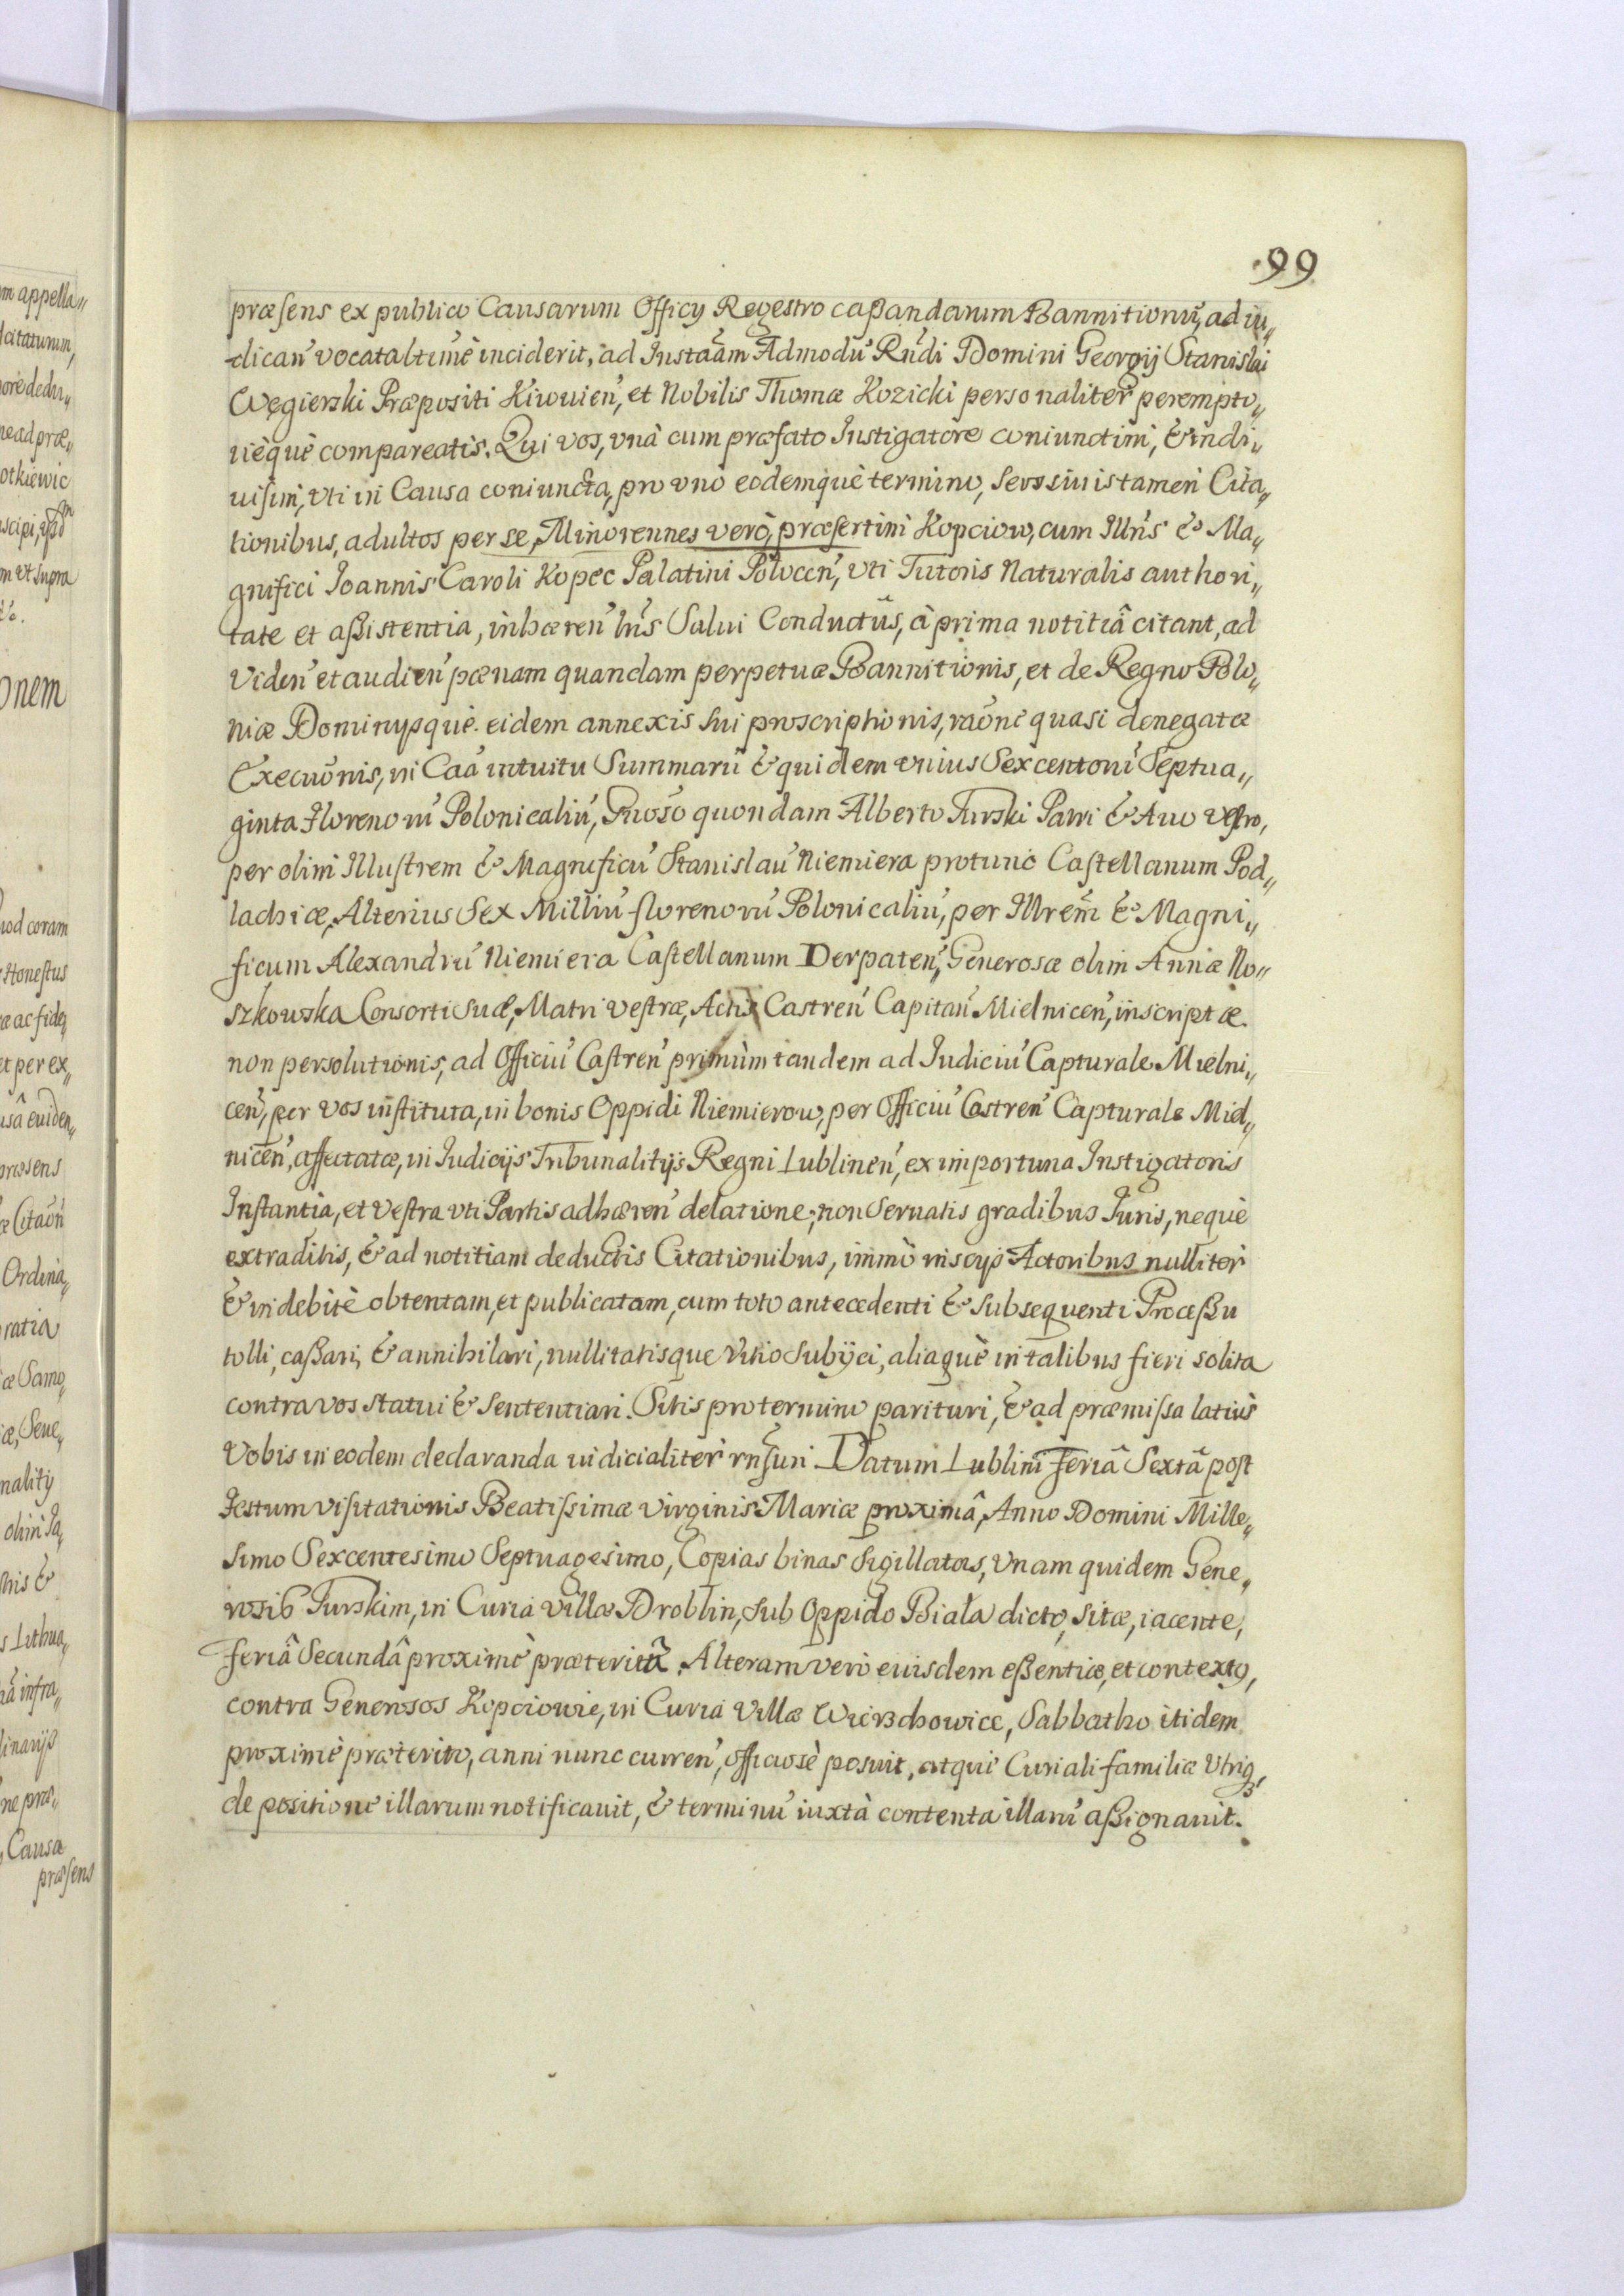 99
præsens ex publico Causarum Officy Regestro caßandarum Bannitionũ, ad iu„
dicań vocataltimè inciderit, ad Instaãm Admodũ Rndi Domini Georgij Stanislai
Węgierski Præpositi Kiiouień, et Nobilis Thomæ Kozicki personaliter perempto„
rièquè compareatis. Qui vos, vnà cum præfato Instigatore coniunctim, & indi„
uisim, vti in Causa coniuncta, pro vno eodemquè termino, seorsiuis tamen Cita„
tionibus, adultos per se, Minorennes verò, præsertim Kopciow, cum Illris & Ma„
gnifici Joannis Caroli Kopec Palatini Polocen, vti Tutoris Naturalis authori„
tate et aßistentia, inhæreń lris Salui Conductûs, à prima notitiâ citant, ad
Videń et audień pænam quandam perpetuæ Bannitionis, et de Regno Polo„
niæ Dominysquè eidem annexis sui proscriptionis, raõne quasi denegatæ
Execuõnis, in Caã intuitu Summarũ & quidem vnius Sexcentorũ Septua„
ginta Florenorũ Polonicaliũ, Gñoso quondam Alberto Turski Patri & Auo Vestro,
per olim Illustrem & Magnificũ Stanislaũ Niemiera protunc Castellanum Pod„
lachiæ, Alterius Sex Milliũ florenorũ Polonicaliũ, per Illrem & Magni„
ficum Alexandrũ Niemiera Castellanum Derpateń, Generosæ olim Annæ No„
szkowska Consorti Suæ, Matri vestræ, Actis Castreń Capitań Mielniceń, inscriptæ
non persolutionis, ad Officiũ Castreń primùm tandem ad Judiciũ Capturale Mielni„
ceń, per vos institura, in bonis Oppidi Niemierow, per Officiũ Castreń Capturale Miel„
niceń, affectatæ, in Iudicijs Tribunalitijs Regni Lublineń, ex importuna Instigatoris
Instantia, et Vestra vti Partis adhæreń delatione, non Seruatis gradibus Juris, nequè
extraditis, & ad notitiam deductis Citationibus, immò inscijs Actoribus nulliter
& indebitè obtentam, et publicatam, cum toto antecedenti & subsequenti Proceßu
tolli, caßari, & annihilari, nullitatisque vitio subijci, aliaquè in talibus fieri solita
contra vos statui & sententiari. Sitis pro termino parituri, & ad præmissa latiùs
Vobis in eodem declaranda iudicialiter rñsuri Datum Lublini Feriâ Sextâ post
Festum visitationis Beatissimæ Virginis Mariæ proximâ, Anno Domini Mille„
simo Sexcentesimo Septuagesimo, Copias binas sigillatas, Vnam quidem Gene„
rosis Turskim, in Curia villæ Droblin, sub Oppido Biała dicto, sitæ, iacente,
feriâ Secundâ proximè præteritâ. Alteram verò euisdem eßentiæ, et contextq,
contra Generosos Kopciowie, in Curia Villæ Wierzchowice, Sabbatho itidem
proximè præterito, anni nunc curreń, officiosè posuit, atquè Curiali familiæ Vtriq,
de positione illarum notificauit, & terminũ iuxtà contenta illarũ aßignauit.